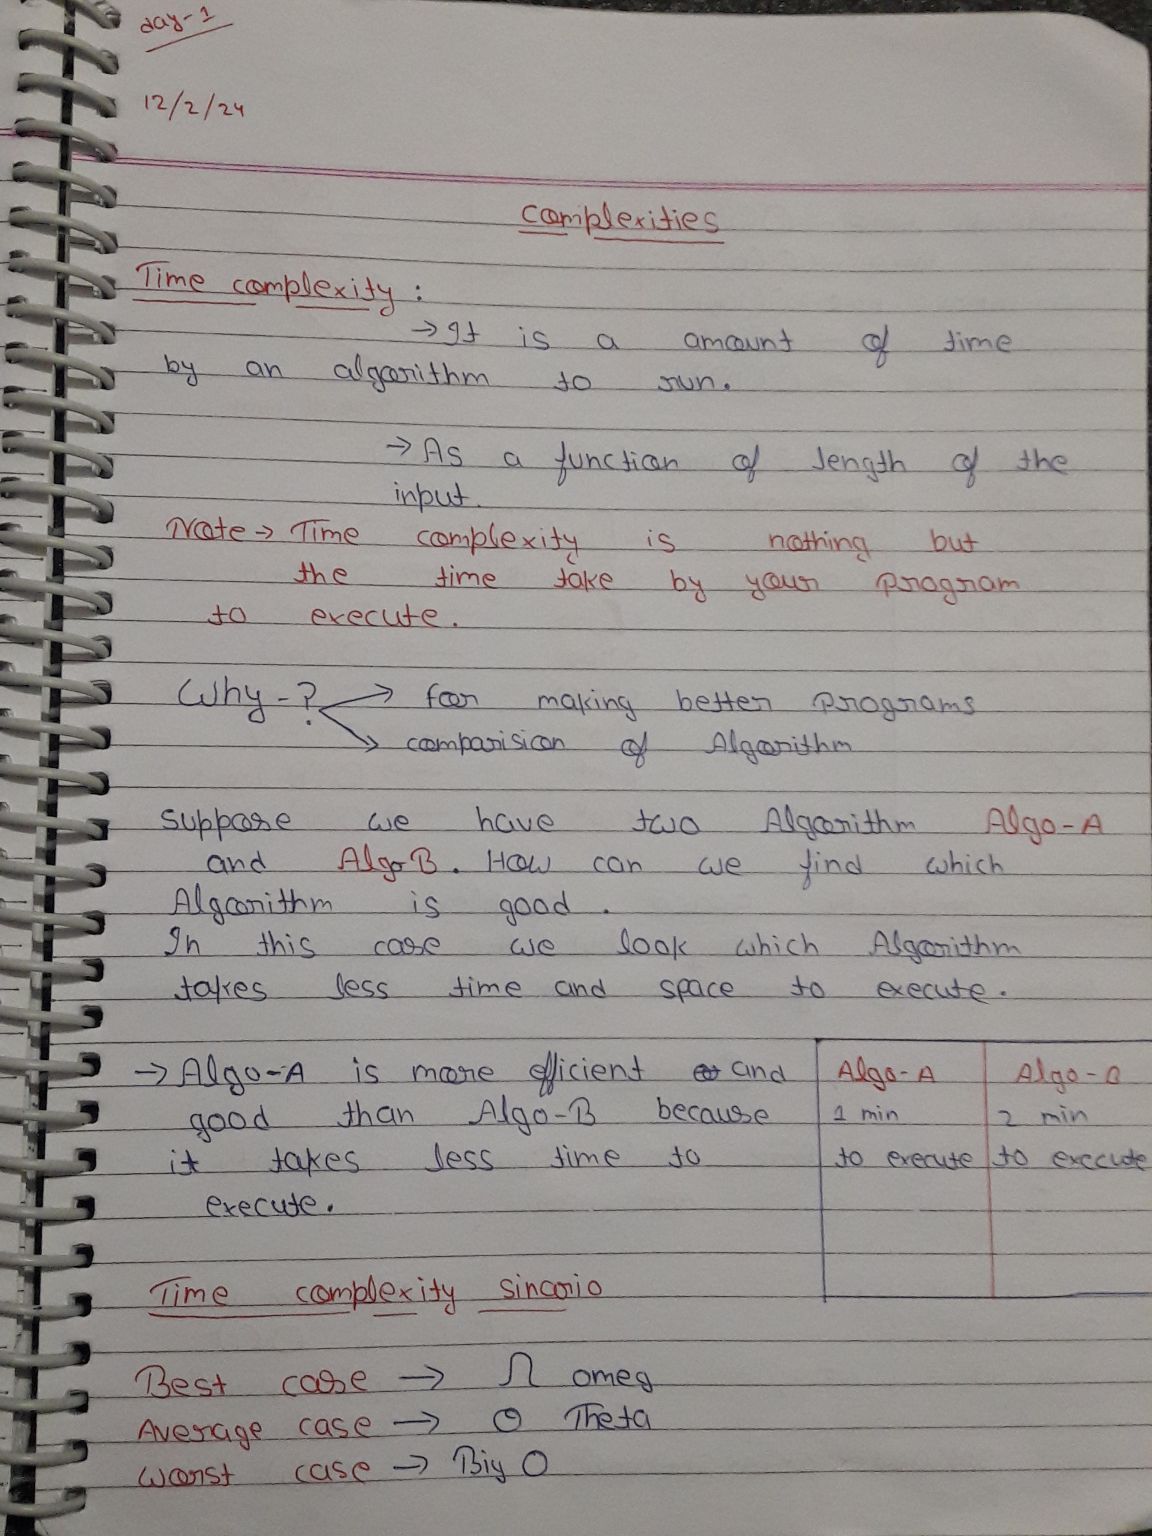 day-1
12/2/24
complexities
Time complexity :
→ It is a amount of time
by an algorithm to run.
→ As a function of length of the
input.
Note → Time complexity is nothing but
the time take by your program
to execute.
Why-? → for making better programs
→ comparision of Algorithm
suppose we have two Algorithm Algo-A
and Algo-B. How can we find which
Algorithm is good.
In this case we look which Algorithm
takes less time and space to execute.
→ Algo-A is more efficient and
good than Algo-B because
it takes less time to
execute.
Algo-A
1 min
to execute
Algo-B
2 min
to execute
Time complexity sincario
Best case → Ω omeg
Average case → Θ Theta
worst case → Big O